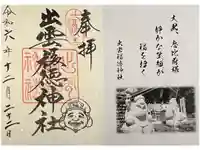 奉拝
出雲福徳神社
令和六年十二月二十二日
大黒、恵比寿様
静かな笑顔が
福を招く
出雲福徳神社